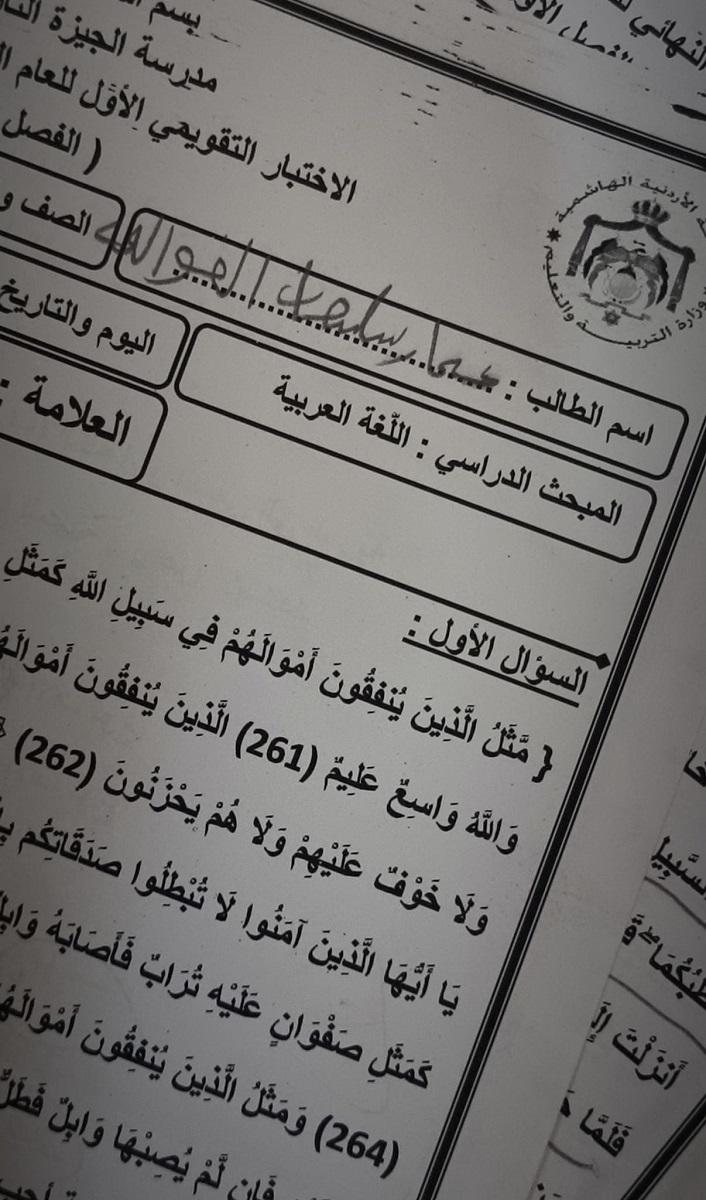 النهائي
الفصل الأول
بسم
مدرسة الجيزة
الاختبار التقويمي الأول للعام
( الفصل
الأردنية الهاشمية
وزارة التربية والتعليم
اسم الطالب : سليمان
الصف و
المبحث الدراسي : اللّغة العربية
اليوم والتاريخ
العلامة :
السؤال الأول :
{ مَّثَلُ الَّذِينَ يُنفِقُونَ أَمْوَالَهُمْ فِي سَبِيلِ اللَّهِ كَمَثَلِ
وَاللَّهُ وَاسِعٌ عَلِيمٌ (261) الَّذِينَ يُنفِقُونَ
وَلَا خَوْفٌ عَلَيْهِمْ وَلَا هُمْ يَحْزَنُونَ (262)
يَا أَيُّهَا الَّذِينَ آمَنُوا لَا تُبْطِلُوا صَدَقَاتِكُم
كَمَثَلِ صَفْوَانٍ عَلَيْهِ تُرَابٌ فَأَصَابَهُ
(264) وَمَثَلُ الَّذِينَ يُنفِقُونَ
فَإِن لَّمْ يُصِبْهَا وَابِلٌ فَطَلٌّ
أَنزَلْتَ
فَلَمَّا